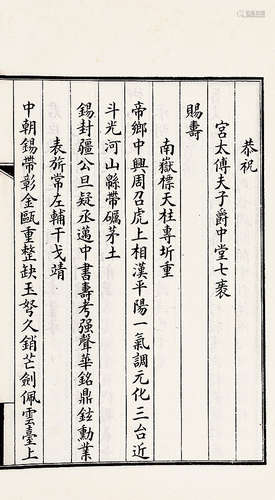 恭祝
宮太傅夫子爵中堂七袠
賜壽
南嶽標天柱專圻重
帝鄉中興周召虎上相漢平陽一氣調元化三台近
斗光河山緜帶礪茅土
錫封疆公旦疑丞邁中書壽考强聲華銘鼎鉉勳業
表旂常左輔干戈靖
中朝錫帶彰金甌重整缺玉弩久銷芒劍佩雲臺上